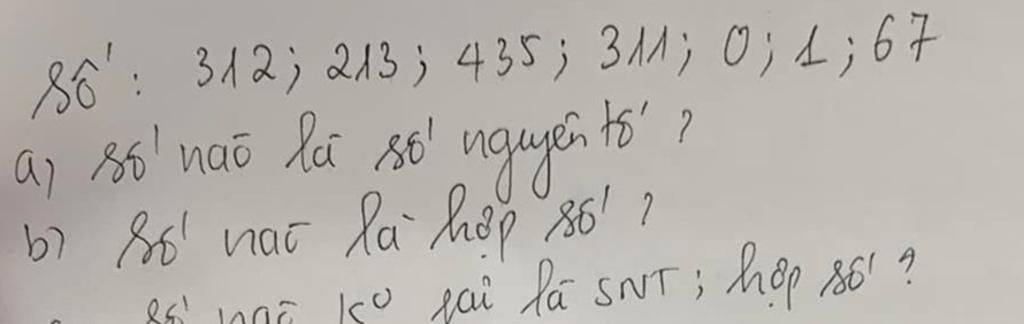 Số : 312; 213; 435; 311; 0; 1; 67
a) Số nào là số nguyên tố ?
b) Số nào là hợp số ?
số nào ko là SNT; hợp số ?